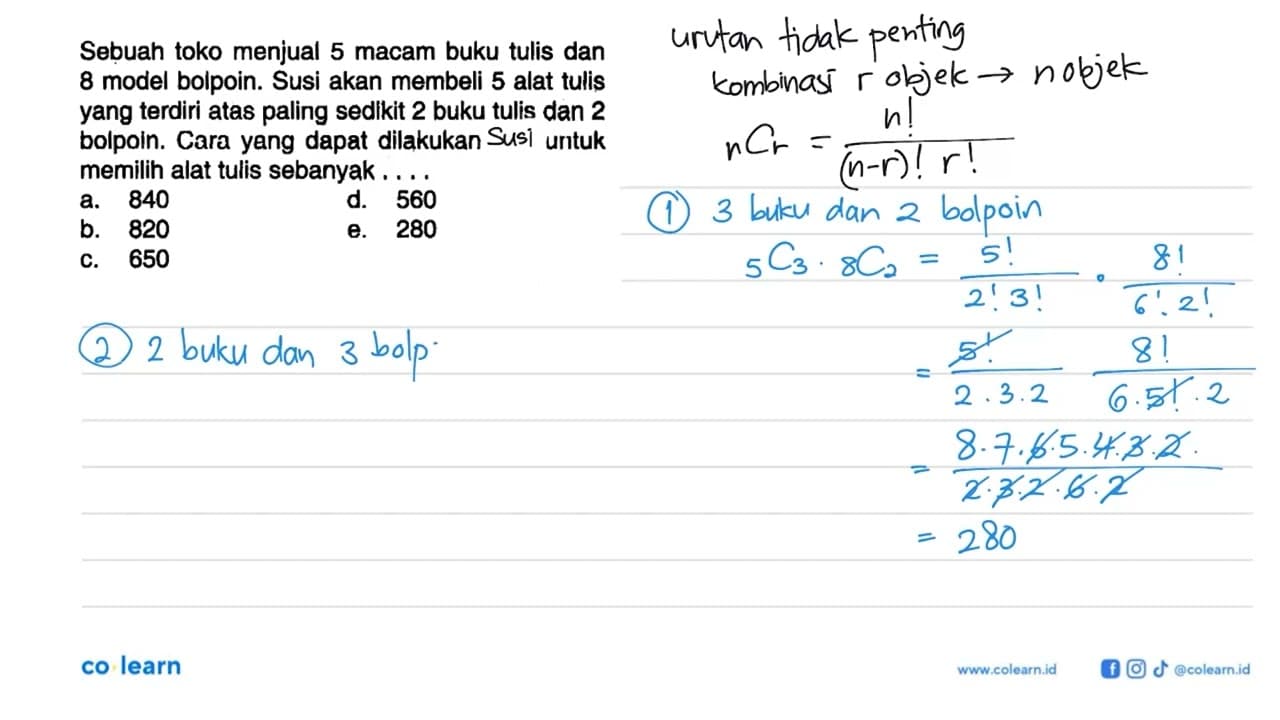 Sebuah toko menjual 5 macam buku tulis dan
8 model bolpoin. Susi akan membeli 5 alat tulis
yang terdiri atas paling sedikit 2 buku tulis dan 2
bolpoin. Cara yang dapat dilakukan Susi untuk
memilih alat tulis sebanyak ....
a. 840 d. 560
b. 820 e. 280
c. 650
② 2 buku dan 3 bolp.
urutan tidak penting
kombinasi r objek → n objek
nCr = n! / (n-r)! r!
① 3 buku dan 2 bolpoin
5C3 . 8C2 = 5! / 2! 3! . 8! / 6! 2!
= 5! / 2.3.2 8! / 6.5!.2
= 8.7.6.5.4.3.2. / 2.3.2.6.2
= 280
co learn
www.colearn.id @colearn.id